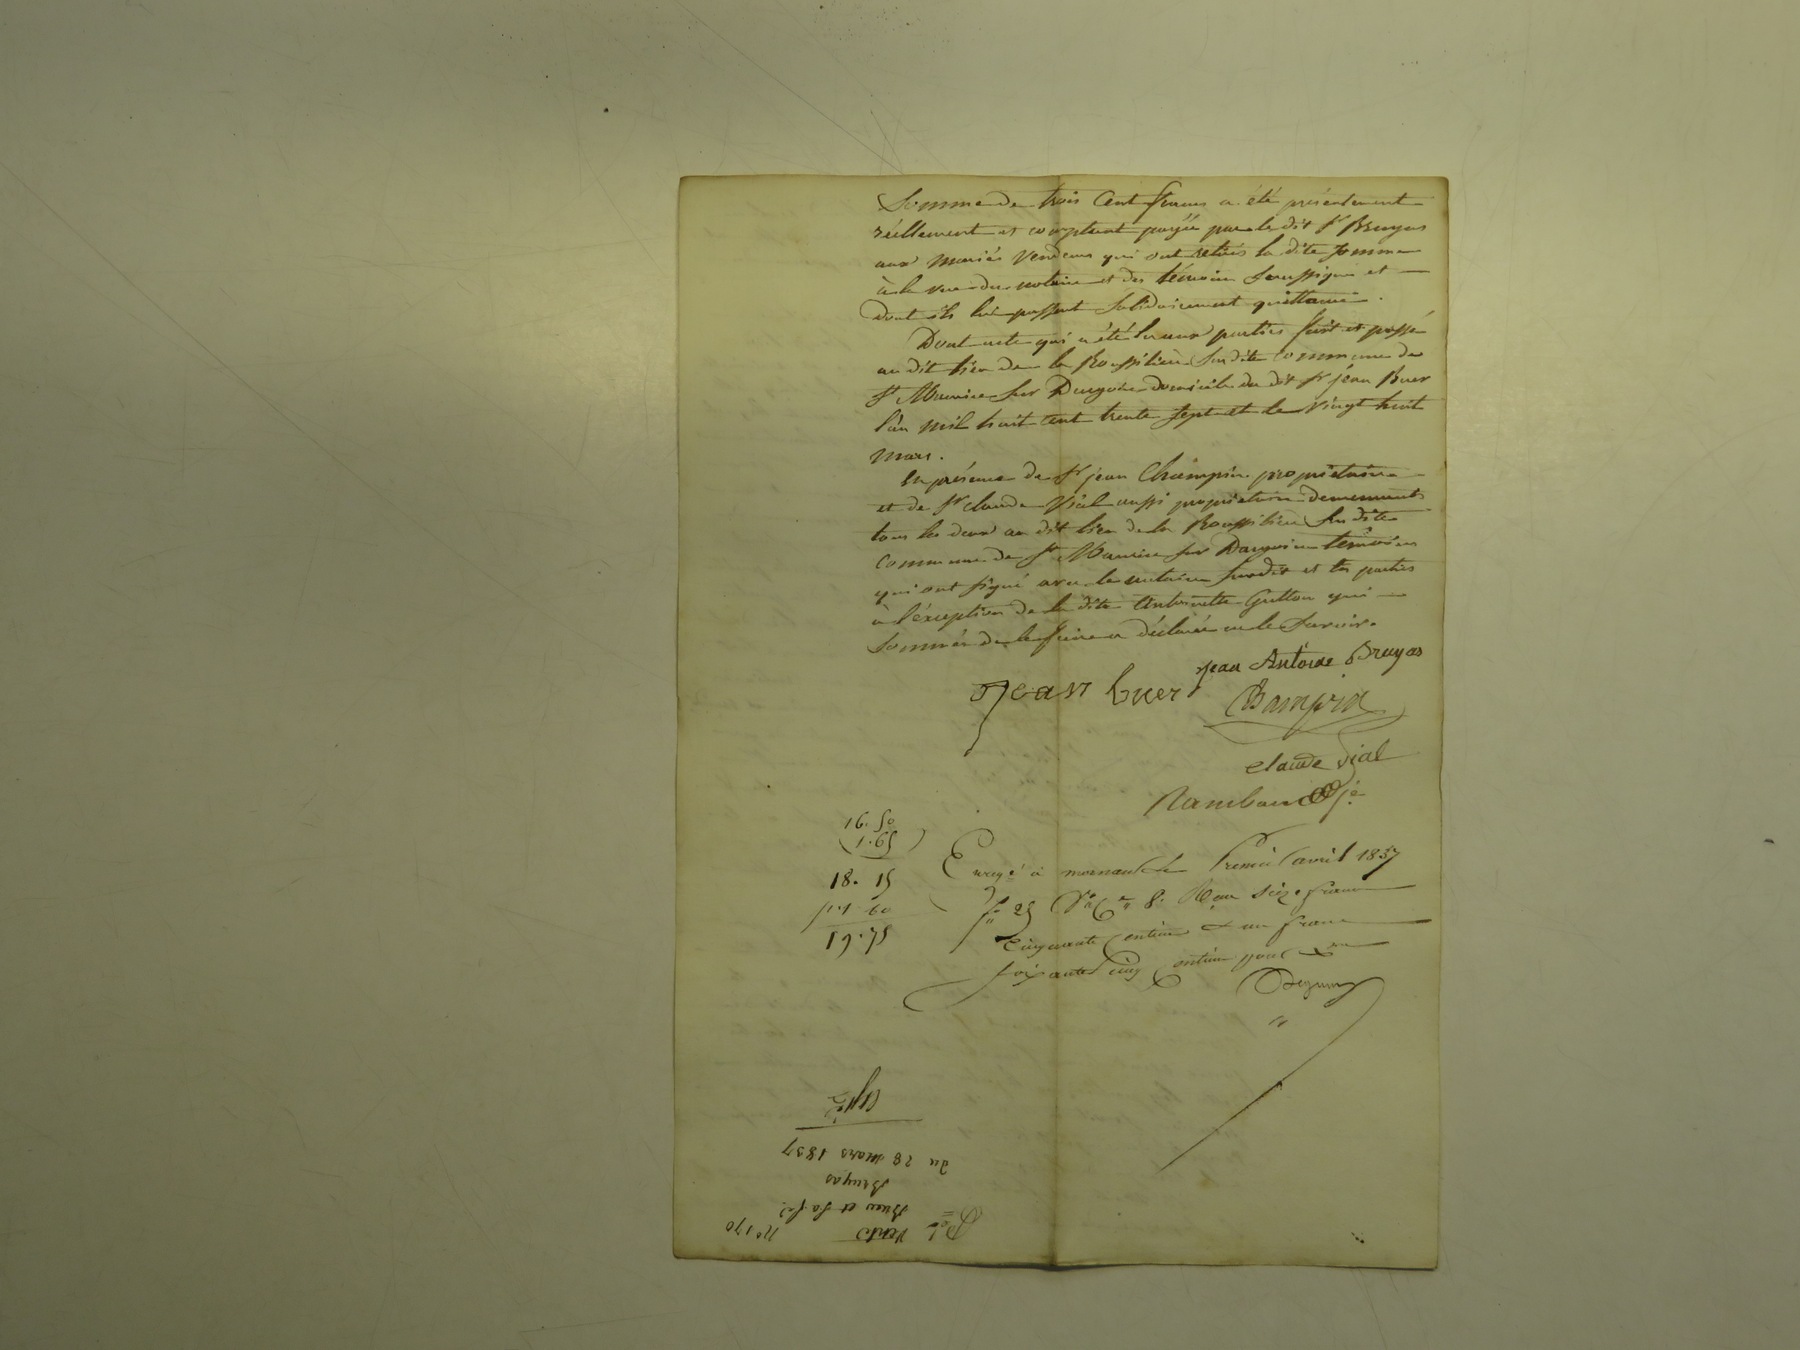 Somme de trois Cent francs a été présentement
réellement et comptant payée par le dit sr Bruyas
aux mariés Vendeurs qui ont retirés la dite somme
à la vue du notaire et des témoins soussignés et
dont ils lui passent solidairement quittance.
Dont acte qui a été lu aux parties fait et passé
au dit lieu de la Roussilière susdite commune de
St Maurice sur Dargoire domicile du dit sr jean Buer
l'an mil huit cent trente sept et le vingt huit
mars.
En présence de sr jean Champin propriétaire
et de sr claude Vial aussi propriétaire demeurants
tous les deux au dit lieu de la Roussilière susdite
commune de St Maurice sur Dargoire témoins
qui ont signé avec le notaire susdit et les parties
à l'exception de la dite Antoinette Gutton qui
sommée de le faire a déclaré ne le savoir.
jean Antoine Bruyas
jean buer
Champin
claude vial
16.50
1.65
18.15
1.60
19.75
Enregé à mornant le Premier avril 1837
fo 25 Vo Ce 8. Reçu seize francs
cinquante centimes & un franc
soixante cinq centimes pour
No 170
Vente
Buer et sa fe
Bruyas
du 28 mars 1837